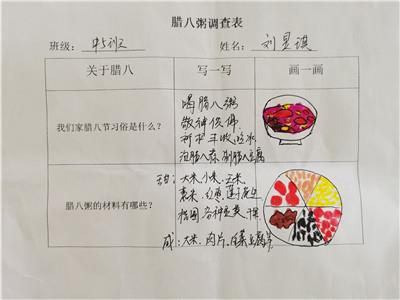 腊八粥调查表
班级：中5班 姓名：刘昱琪
关于腊八 写一写 画一画
我们家腊八节习俗是什么？
喝腊八粥
敬神供佛
祈求丰收吉祥
泡腊八蒜 制腊八豆腐
腊八粥的材料有哪些？
甜：大米、小米、玉米
薏米、红枣、莲子、花生
桂圆、各种豆类、干果
咸：大米、肉片、白菜、豆腐等